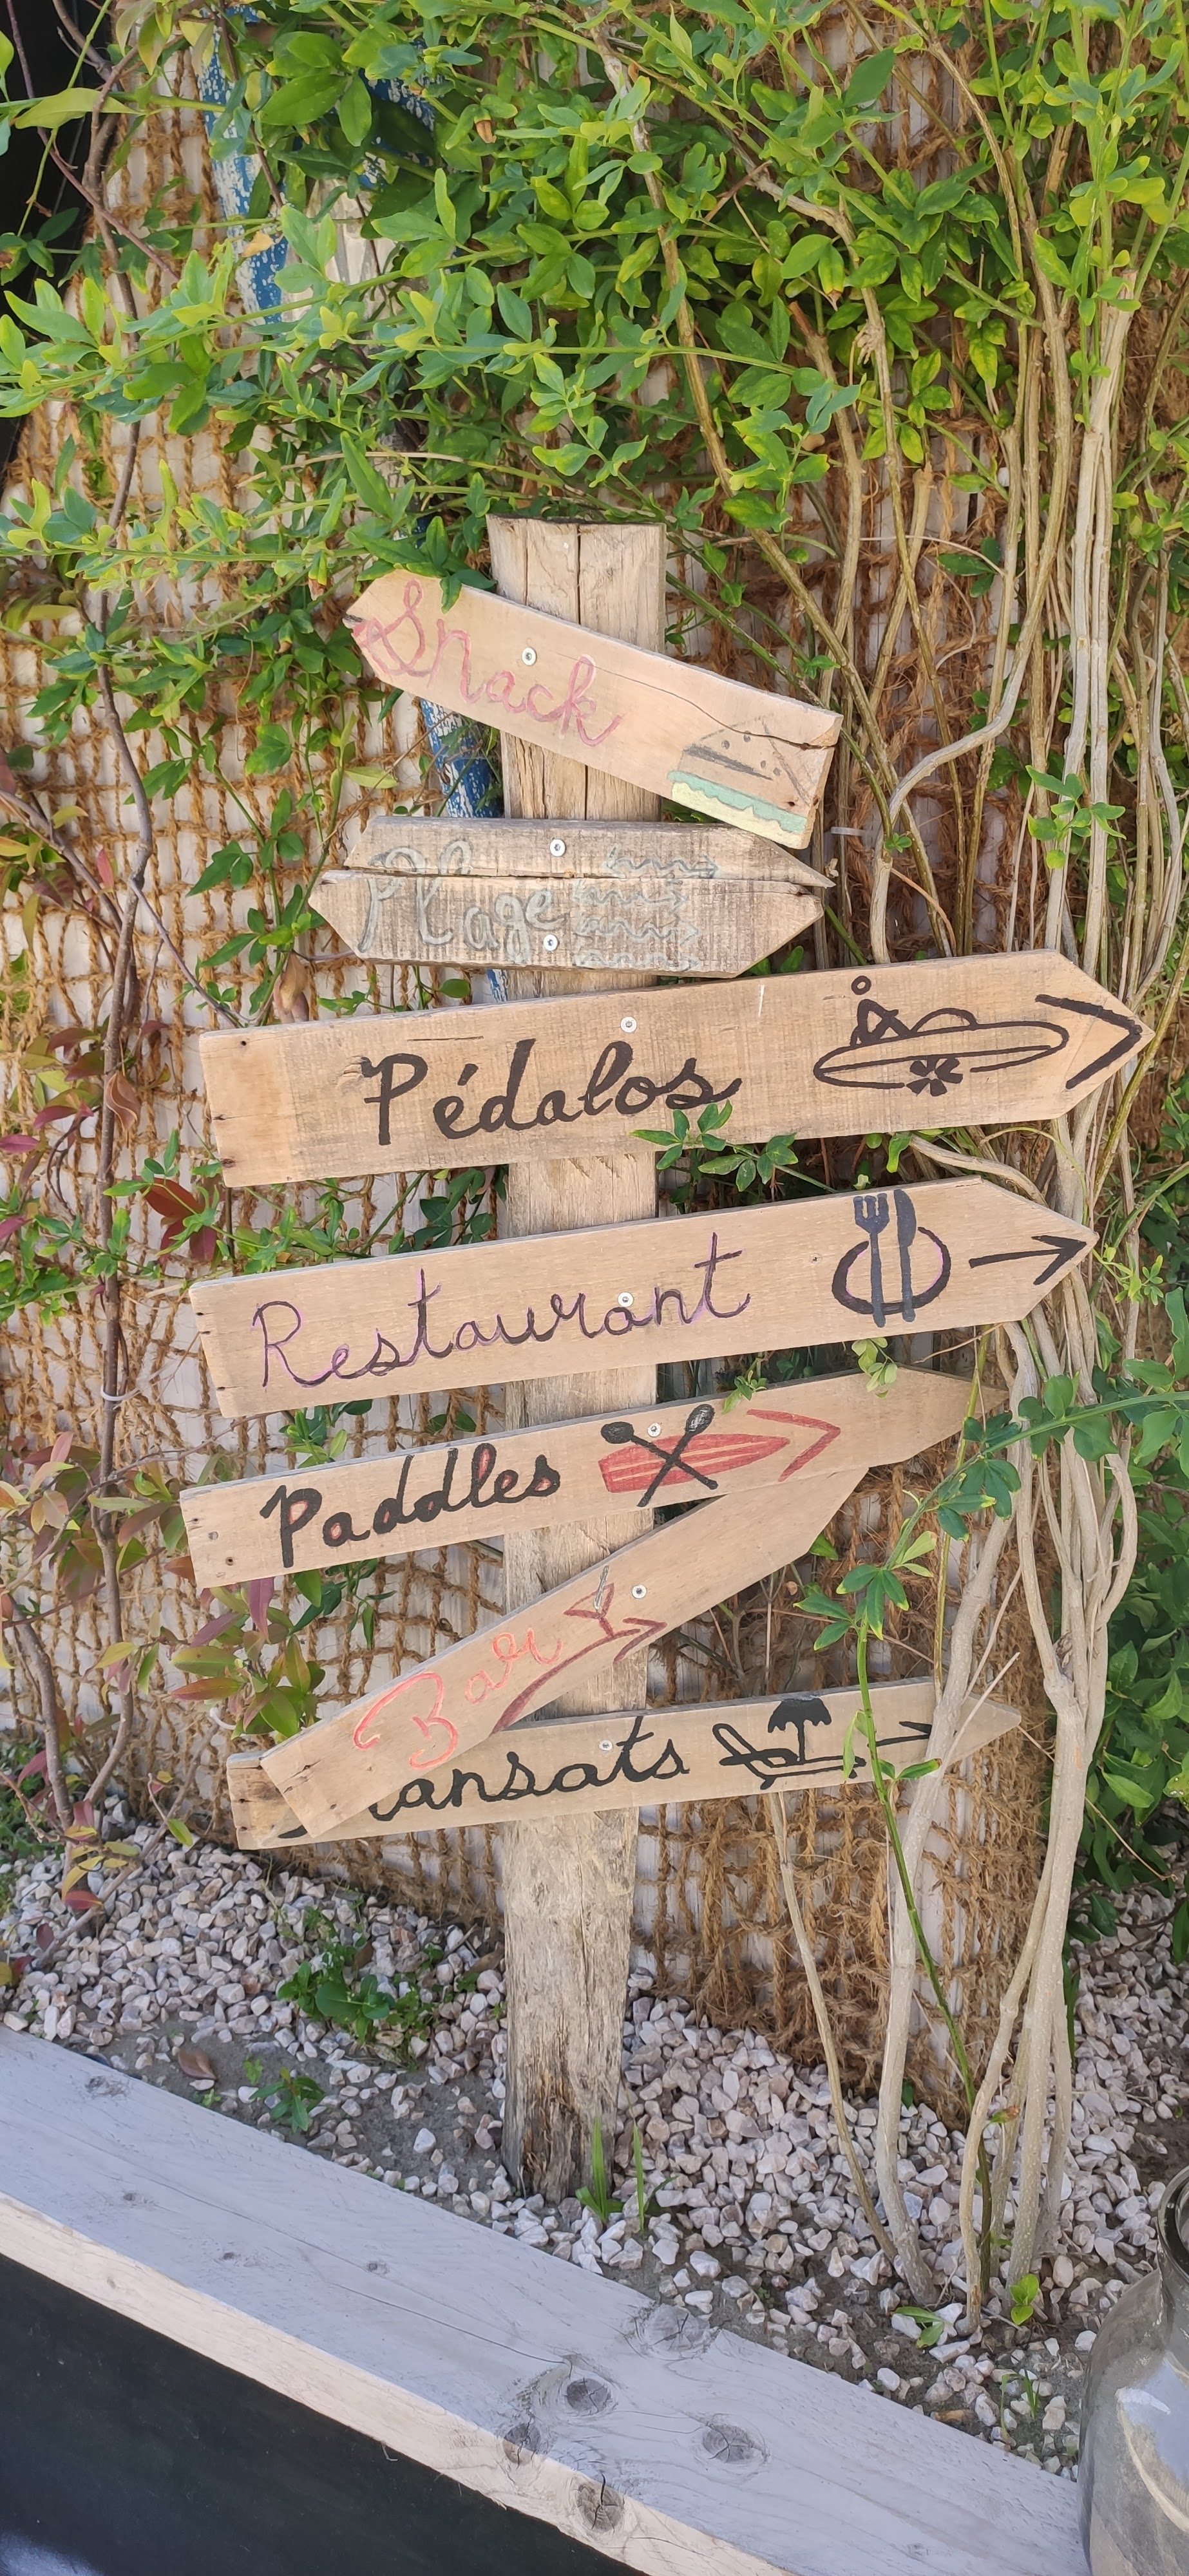 Snack
Plage
Pédalos
Restaurant
Paddles
Bar
ansats